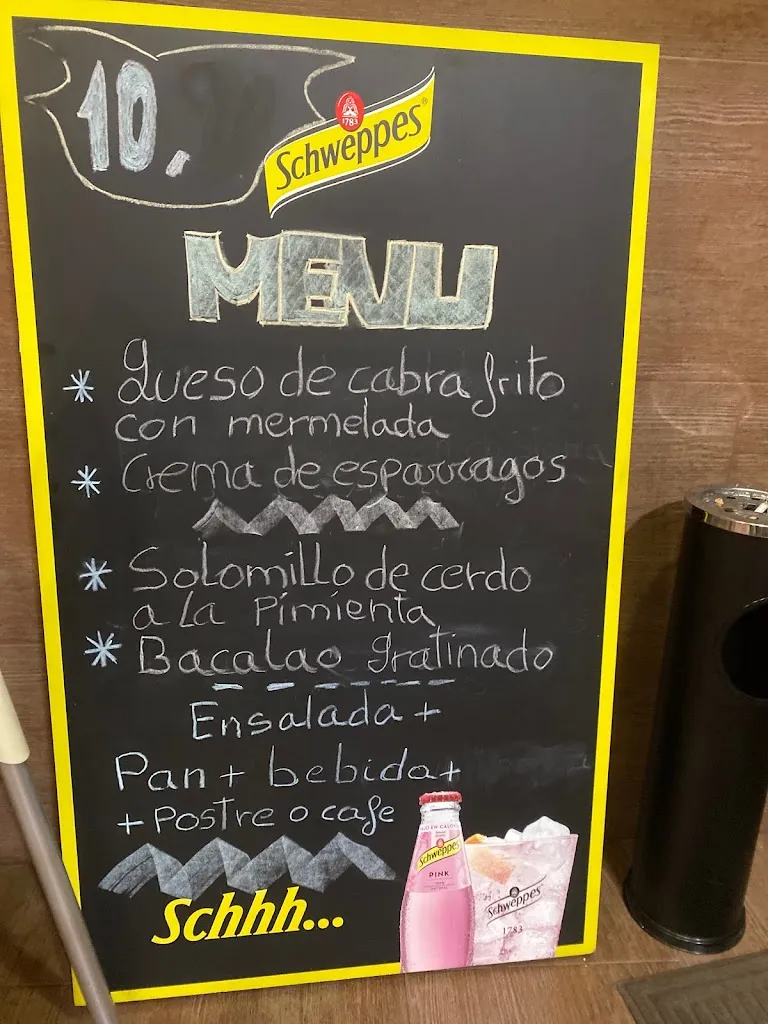 10,
1783
Schweppes
MENU
* Queso de cabra frito
con mermelada
* Crema de esparragos
* Solomillo de cerdo
a la Pimienta
* Bacalao gratinado
Ensalada +
Pan + bebida +
+ Postre o cafe
Schhh...
Schweppes
PINK
Schweppes
1783